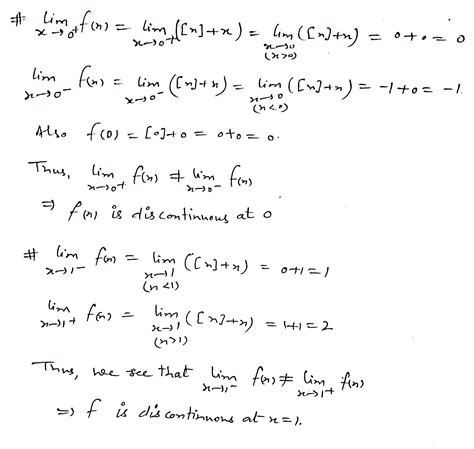 # lim x→0+ f(x) = lim x→0+ ([x]+x) = lim x→0 (x>0) ([x]+x) = 0+0 = 0
lim x→0- f(x) = lim x→0- ([x]+x) = lim x→0 (x<0) ([x]+x) = -1+0 = -1.
Also f(0) = [0]+0 = 0+0 = 0.
Thus, lim x→0+ f(x) ≠ lim x→0- f(x)
⇒ f(x) is discontinuous at 0
# lim x→1- f(x) = lim x→1 (x<1) ([x]+x) = 0+1 = 1
lim x→1+ f(x) = lim x→1 (x>1) ([x]+x) = 1+1 = 2
Thus, we see that lim x→1- f(x) ≠ lim x→1+ f(x)
⇒ f is discontinuous at x=1.